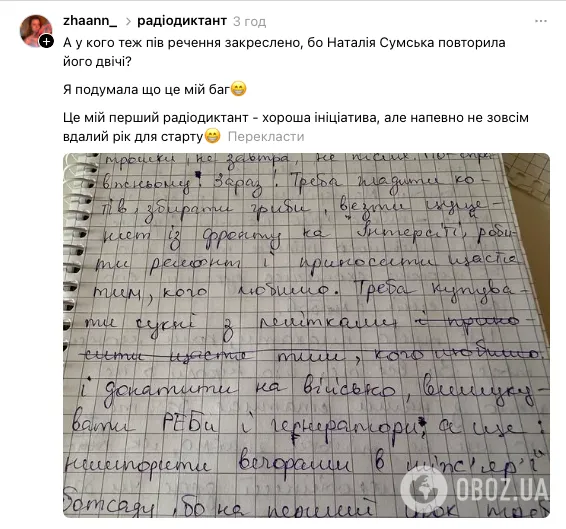 zhaann_ > радіодиктант 3 год
А у кого теж пів речення закреслено, бо Наталія Сумська повторила
його двічі?
Я подумала що це мій баг😁
Це мій перший радіодиктант - хороша ініціатива, але напевно не зовсім
вдалий рік для старту😁 Перекласти
трошки, не завтра, не після.
втньому! Зараз! Треба гладити ко-
тів, збирати гриби, везти цуце-
нят із фронту на Інтерсіті, роби-
ти ремонт і приносити щастя
тим, кого любимо. Треба купува-
ти сукні з лелітками і прино-
сити щастя тим, кого любимо
і донатити на військо, вишуку-
вати РЕБи і генератори, а ще
шепотіти вечорами в
ботсаду, бо на перший
OBOZ.UA